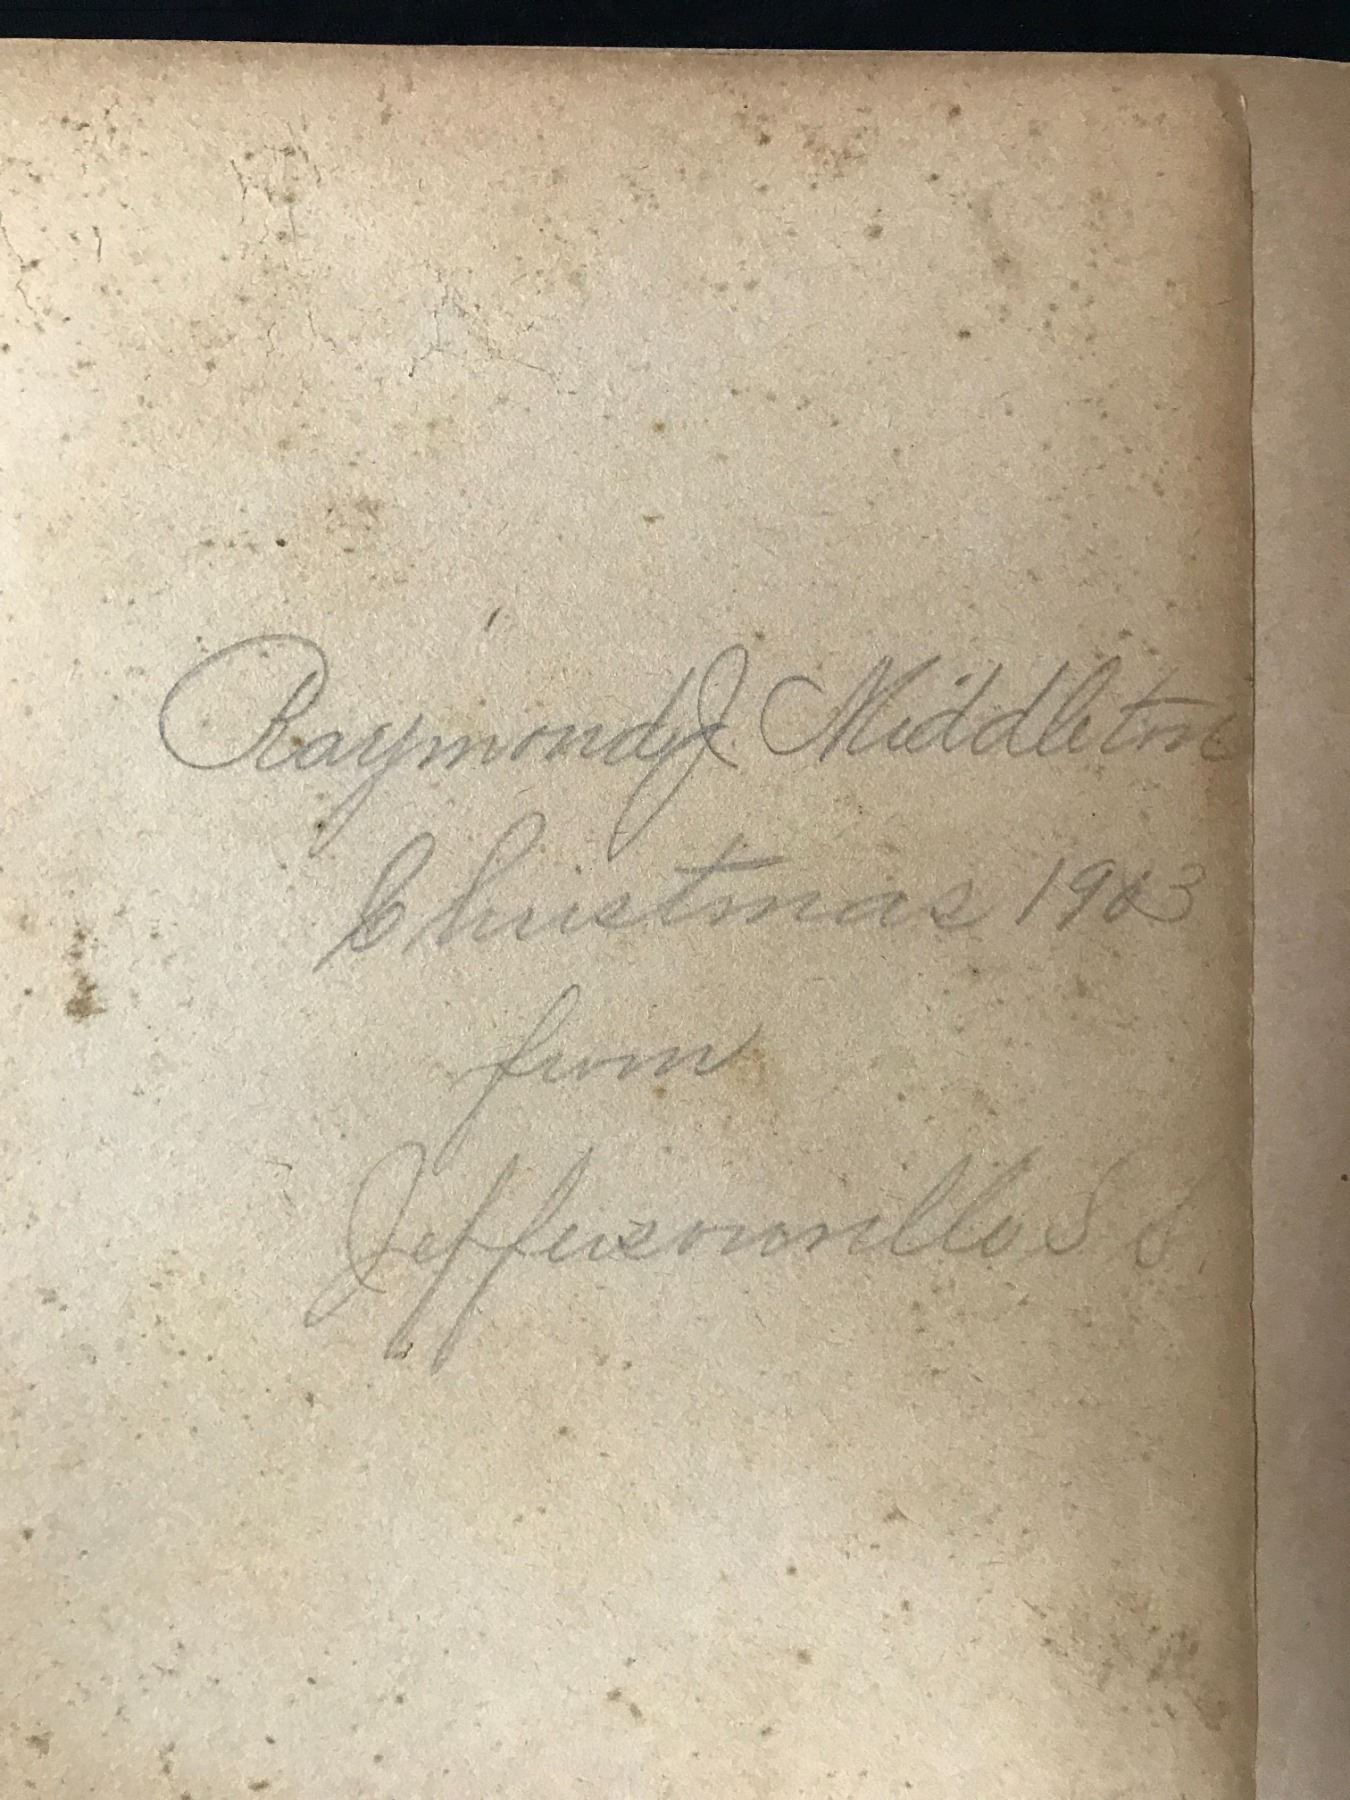 Raymond J. Middleton
Christmas 1903
from
Jeffersonville S S.